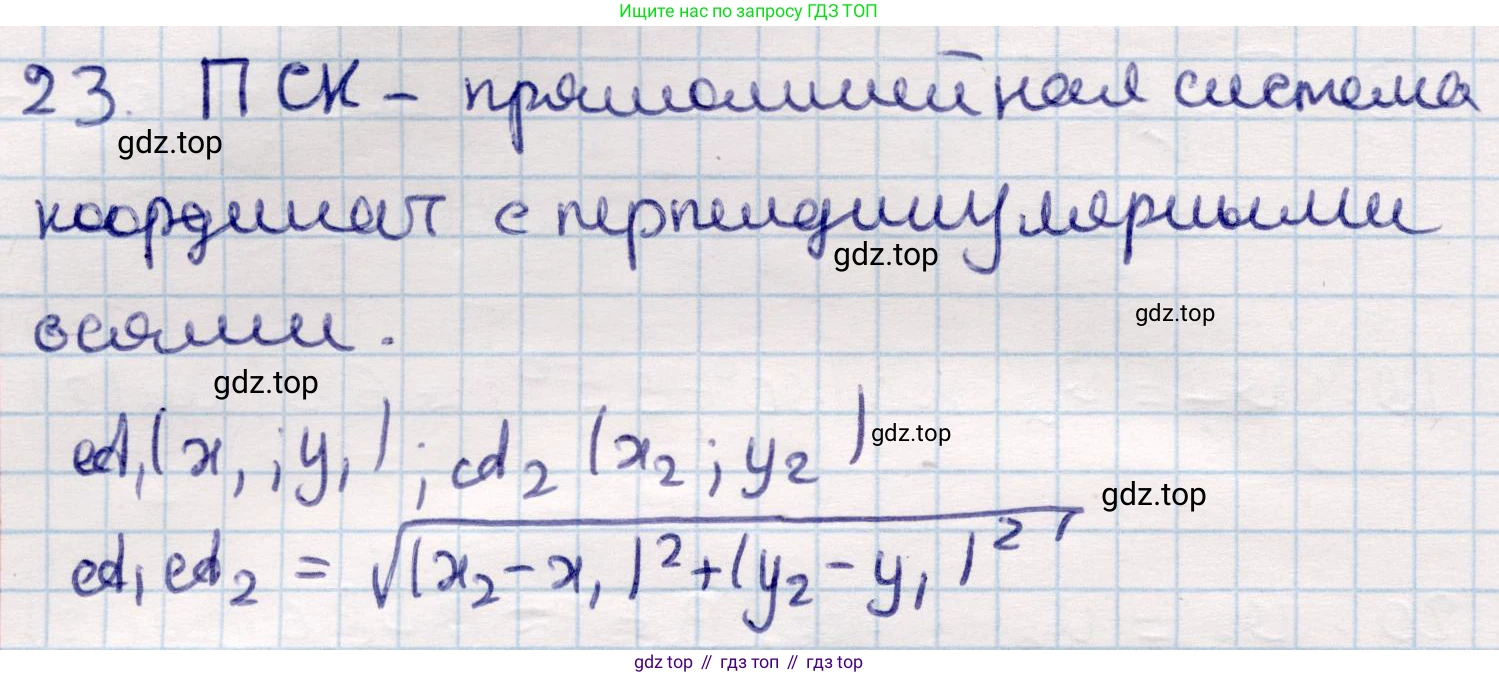 Ищите нас по запросу ГДЗ ТОП
23. ПСК - прямолинейная система
gdz.top
координат с перпендикулярными
gdz.top
осями.
gdz.top
gdz.top
A₁(x₁;y₁); A₂(x₂;y₂)
gdz.top
gdz.top
A₁A₂ = √((x₂-x₁)²+(y₂-y₁)²)
gdz.top // гдз топ // гдз top